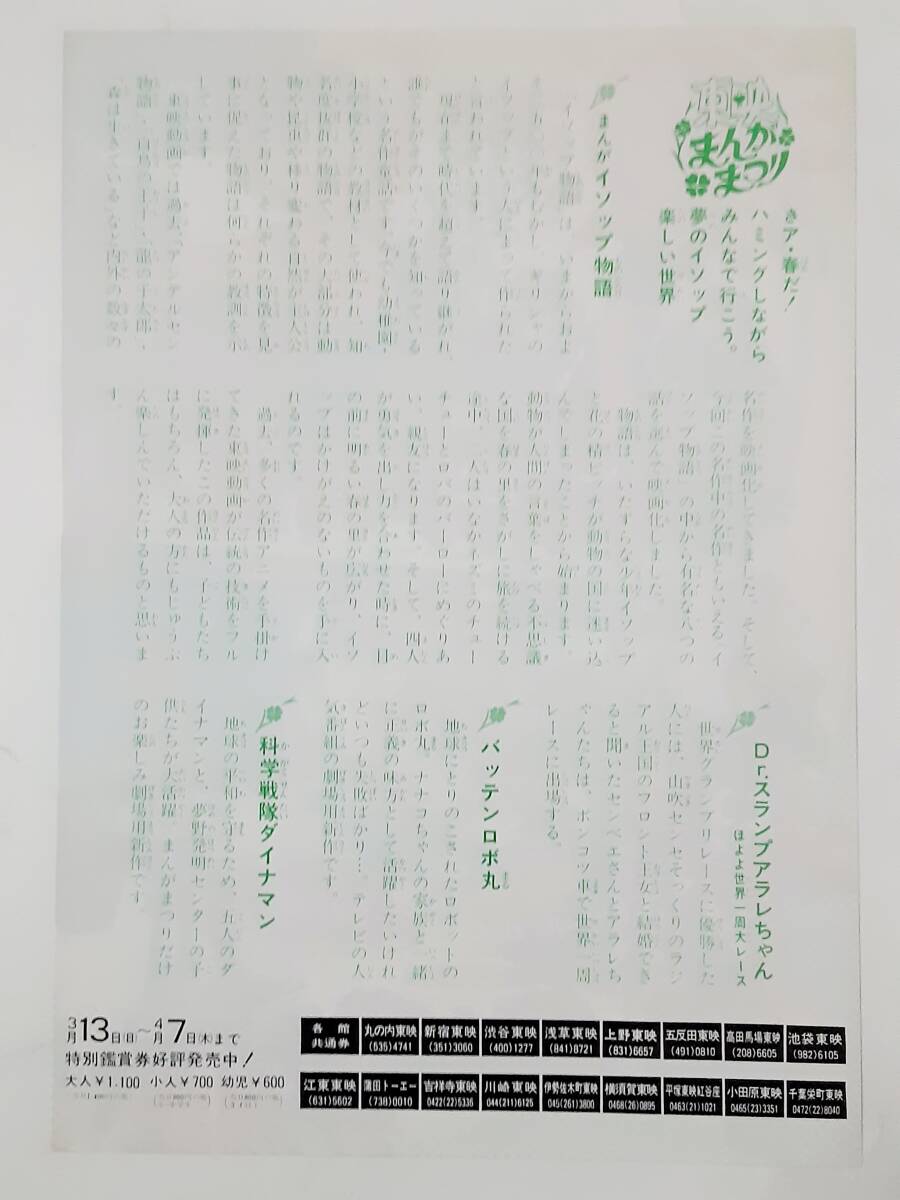 東映
まんが
まつり
さァ・春だ!
ハミングしながら
みんなで行こう。
夢のイソップ
楽しい世界
まんがイソップ物語
「イソップ物語」は、いまからおよ
ギリシャの
イソップという人によって作られた
と言われています。
現在まで時代を超えて語り継がれ、
誰でもがそのいくつかを知っている
という名作童話です。今でも幼稚園・
小学校などの教材として使われ、知
名度抜群の物語で、その大部分は動
物や昆虫や移り変わる自然が主人公
となっており、それぞれの特徴を見
事に捉えた物語は何らかの教訓を示
しています。
東映動画では過去「アンデルセン
物語」・「白鳥の王子」・「龍の子太郎」・
「森は生きている」など内外の数々の
名作を映画化してきました。そして、
今回この名作中の名作ともいえる「イ
ソップ物語」の中から有名な八つの
話を選んで映画化しました。
物語は、いたずらな少年イソップ
と花の精ピッチが動物の国に迷い込
んでしまったことから始まります。
動物が人間の言葉をしゃべる不思議
な国を春の里をさがしに旅を続ける
途中、二人はいなかネズミのチュー
チューとロバのバーローにめぐりあ
い、親友になります。そして、四人
が勇気を出し力を合わせた時に、目
の前に明るい春の里が広がり、イソ
ップはかけがえのないものを手に入
れるのです。
過去、多くの名作アニメを手掛け
てきた東映動画が伝統の技術をフル
に発揮したこの作品は、子どもたち
はもちろん、大人の方にもじゅうぶ
ん楽しんでいただけるものと思いま
す。
Dr.スランプアラレちゃん
ほよよ世界一周大レース
世界グランプリレースに優勝した
人には、山吹センセそっくりのラジ
アル王国のフロント王女と結婚でき
ると聞いたセンベエさんとアラレち
ゃんたちは、ポンコツ車で世界一周
レースに出場する。
バッテンロボ丸
地球にとりのこされたロボットの
ロボ丸。ナナコちゃんの家族と一緒
に正義の味方として活躍したいけれ
どいつも失敗ばかり…。テレビの人
気番組の劇場用新作です。
科学戦隊ダイナマン
地球の平和を守るため、五人のダ
イナマンと、夢野発明センターの子
供たちが大活躍。まんがまつりだけ
のお楽しみ劇場用新作です。
3月13日(日)~4月7日(木)まで
特別鑑賞券好評発売中!
大人¥1.100 小人¥700 幼児¥600
各館共通券
丸の内東映 (535)4741
新宿東映 (351)3060
渋谷東映 (400)1277
浅草東映 (841)8721
上野東映 (831)6657
五反田東映 (491)0810
高田馬場東映 (208)6605
池袋東映 (982)6105
江東東映 (631)5602
蒲田トーエー (738)0010
吉祥寺東映 0422(22)5336
川崎東映 044(211)6125
伊勢佐木町東映 045(261)3800
横須賀東映 0468(26)0895
平塚東映紅谷座 0463(21)1021
小田原東映 0465(23)3351
千葉栄町東映 0472(22)8040